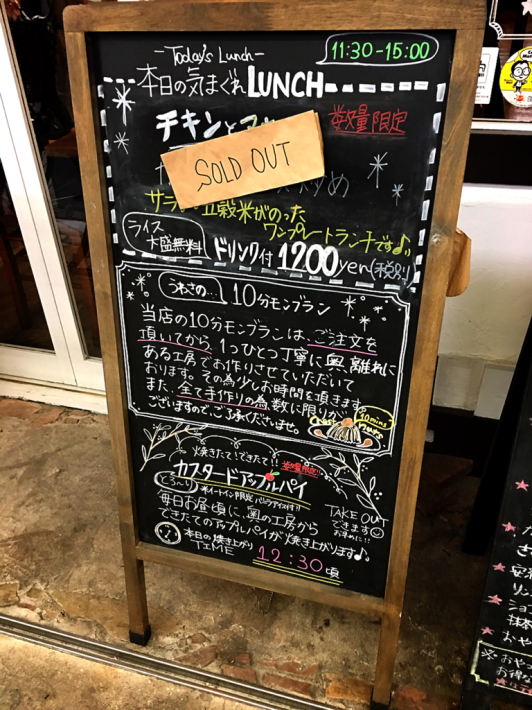 -Today's Lunch-
11:30-15:00
本日の気まぐれLUNCH
チキンと
数量限定
SOLD OUT
炒め
サラダ 五穀米がのった
ワンプレートランチです♪
ライス
大盛無料
ドリンク付 1200yen(税別)
うわさの… 10分モンブラン
当店の10分モンブランは、ご注文を
頂いてから、1つひとつ丁寧に奥離れに
ある工房でお作りさせていただいて
おります。その為少しお時間を頂きます。
また、全て手作りの為、数に限りが
ございますので、ご了承くださいませ。
10mins
焼きたて!できたて!! 数量限定!!
カスタードアップルパイ
とろ〜り
※イートイン限定 バニラアイス付!!
毎日お昼頃に、奥の工房から
できたてのアップルパイが焼き上がります♪
TAKE OUT
できます☺
お早めに!!
本日の焼き上がり
TIME
12:30頃